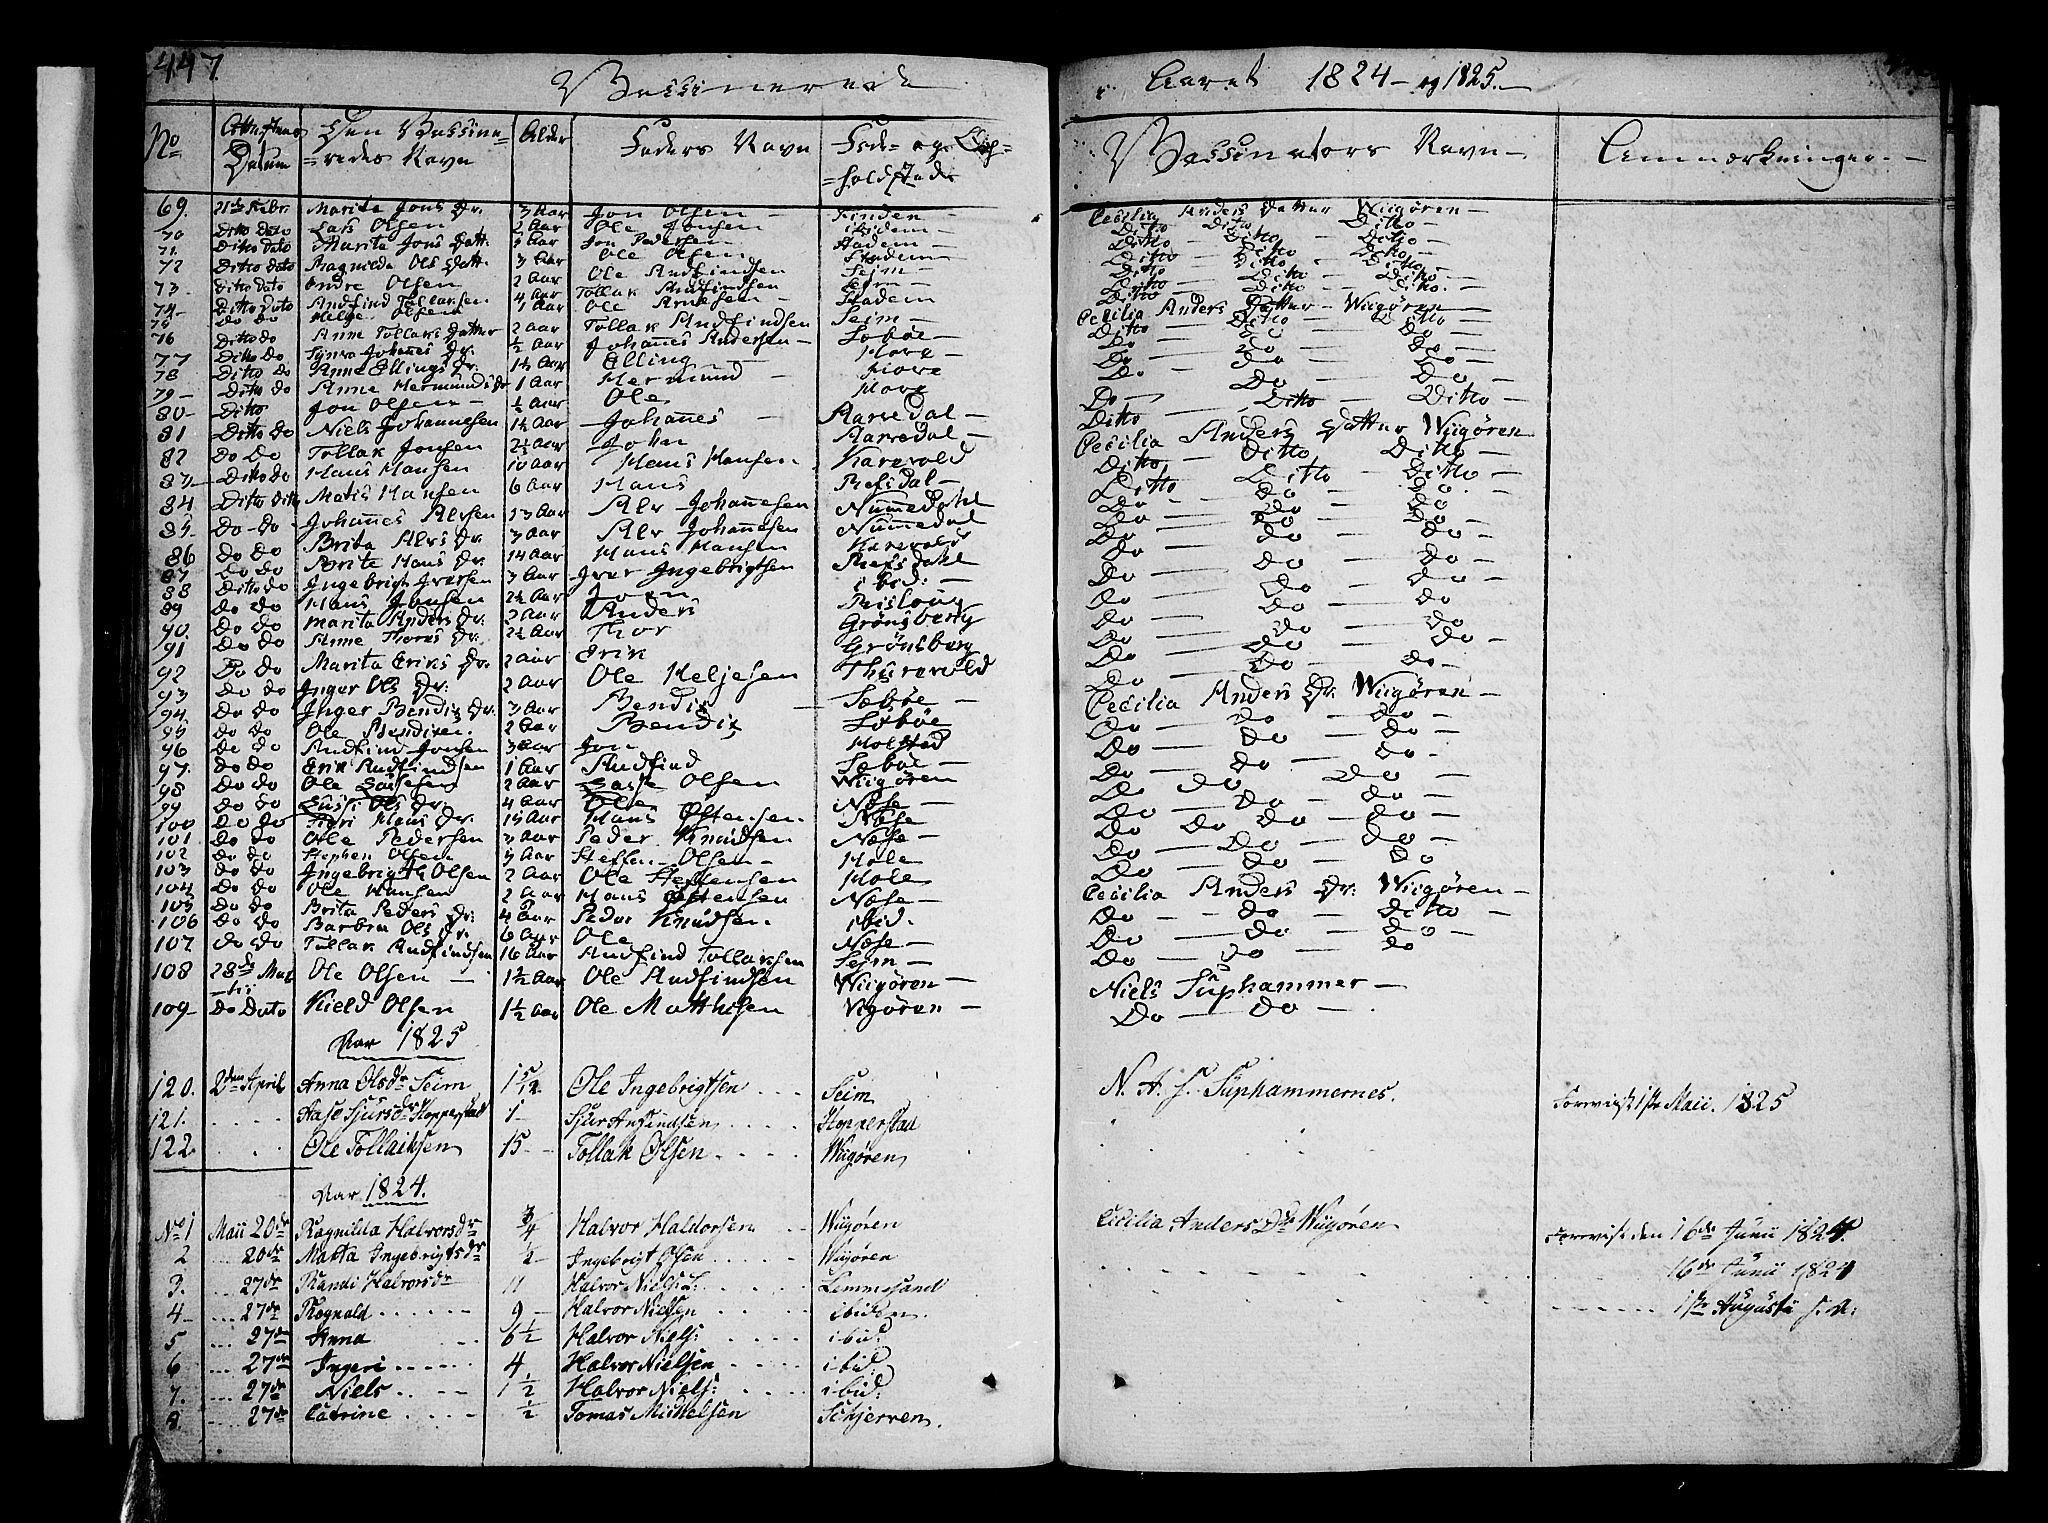 447.
Vassinerede
i Aaret 1824 - og 1825. -
No
Attestens Datum
Den Vassineredes Navn
Alder
Faders Navn
Føde- og Opholdsstæd
Vassinators Navn -
Anmærkninger. -
69. 21de Febr. Marita Jons Dr. 3 Aar Jon Olsen - Finden - Cecilia Anders Datter Wiigøren -
70 Ditto Dato Lars Olsen 2 Aar Ole Jonsen ibidem - Ditto Ditto Ditto -
71. Ditto Dato Marita Jons Datt: Aar Jon Pedersen Stadem - Ditto - Ditto - Ditto -
72 Ditto Dato Ragnilda Ols Datt. 3 Aar Ole Olsen Stadem Ditto - Ditto Ditto
73. Ditto Dato Endre Olsen 2 Aar Ole Andfindsen Seim - Ditto - Ditto - Ditto.
74 - Ditto Dato Andfind Tollaksen 4 Aar Tollak Andfindsen Seim - Ditto Ditto Ditto. -
75 Do Do Helge Olsen 1 Aar Ole Stadem Cecilia Anders Datter - Wiigøren -
76 Ditto Do Anne Tollaks Datter 2 Aar Tollak Andfindsen Seim - Ditto - Ditto - Ditto -
77 Ditto Do Synva Johañes Dr. ½ Aar Johañes Andersen - Sæbøe - Do - Do Do -
78 Ditto Do Anne Ellings Dr. 1½ Aar Elling - Hove - Do - Do Do -
79 - Ditto Do Anne Hermunds Dr 1 Aar Hermund - Hove Do. - Do Do -
80 - Ditto Jon Olsen - ½ Aar Ole Hove Do - Ditto - Ditto -
81 Ditto Do Niels Johannesen 1½ Aar Johañes - Aarsedal - Ditto
82 Do Do Tollak Jonsen 2½ Aar John Aarsedal - Cecilia Anders Datter Wiigøren
83 - Ditto Do Hans Hansen 10 Aar Hans Hansen - Karevold Ditto, - Ditto Ditto -
84 Ditto Ditto Matis Hansen 6 Aar Hans Refsdal - Ditto Ditto - Ditto -
85 - Do - Do Johañes Alvsen 13 Aar Alv Johañesen Nummedahl Do - Do Do
86 Do Do Brita Alvs Dr. 3 Aar Alv Johañesen Nummedal Do - Do Do
87. Do Do Brite Hans Dr. 14 Aar Hans Hansen Karevold Do - Do Do -
88 Ditto Do Ingebrigt Iversen 3 Aar Iver Ingebrigtsen Refsdahl Do - Do Do
89 Do Do Hans Jonsen 2½ Aar John ibid: - Do - Do Do -
90. Do Do Marita Anders Dr: 2 Aar Anders Do - Do Do
91 Do Do Anne Thores Dr. 2½ Aar Thor Grønsberg Do - Do Do
92 Do Do Marita Eriks Dr: 2 Aar Erik Grønsberg Do - Do Do -
93 Do Do Inger Ols Dr: 2 Aar Ole Heljesen Thurevold Do - Do Do -
94 Do Do Inger Bendix Dr: 3 Aar Bendix - Sæbøe - Cecilia Anders Dr. Wiigøren -
95 Do Do Ole Bendixen. 2 Aar Bendix Sæbøe Do - Do - Do -
96 Do Do Andfind Jonsen 3 Aar Jon Holstad Do - Do - Do -
97. Do Do Erik Andfindsen 1 Aar Andfind Sæbøe - Do - Do - Do -
98 Do Do Ole Lassesen 2 Aar Lasse Olsen Wiigøren Do Do Do -
99 Do Do Ols Dr. 4 Aar Ole Næse - Do - Do - Do -
100 Do Do Hans Dr. 15 Aar Hans Østensen. Næse Do Do Do -
101 Do Do Ole Pedersen 3 Aar Peder Knudsen Næse - Do - Do - Do -
102 Do Do Stephen Olsen 3 Aar Steffen - Olsen - Hole Do - Do - Do
103 Do Do Ingebrigth Olsen 2 Aar Ole Steffensen Hole
104 Do Do Ole Hansen 2 Aar Hans Østensen Næse - Cecilia Anders Dr: Wiigøren -
105 Do Do Brita Peders Dr: 4 Aar Peder Knudsen. ibid. Do - - Do - Ditto -
106 Do Do Barbra Ols Dr. 6 Aar Ole Næse - Do - Do - Do -
107. Do Do Tollak Andfindsen 16 Aar Andfind Tollaksen Seim - Do - Do Do
108 28de Martii Ole Olsen - 1½ Aar Ole Andfindsen Wiigøren - Niels Suphammer -
109 - Do Dato Kield Olsen 1½ Aar Ole Matthisen Vigøren - Do - Do -
Aar 1825
120. 2den April Anna Olsdr Seim 1 5/12 Ole Ingebrigtsen Seim N. A. S. Suphammernes. Forevist 1ste Maii. 1825
121. Aase Sjursdr Hopperstad 1 - Sjur Anfindsen Hopperstad
122 Ole Tollaiksen 15 - Tollak Olsen Wiigøren
Aar 1824.
No 1 Maii 20de Ragnilda Halvorsdr ¾ Halvor Haldorsen Wiigøren Cicilia Anders Dr Wiigøren Forevist den 16de Junii 1824.
2 20de Marta Ingebrigtsdr ½ Ingebrigt Olsen Wiigøren 16de Junii 1824
3. 27de Randi Halvorsdr 11 Halvor Nielsen Lemmesand 1ste Augusti s. A:
4 27de Rognald 9 - Halvor Nielsen ibidem.
5 27de Anna 6½ Halvor Niels: ibid:
6 27de Ingeri 4 Halvor Nielsen ibid
7. 27de Niels 1½ Halvor Niels: ibid:
8. 27de Catrine ½ Tomas Michelsen Schjerven.